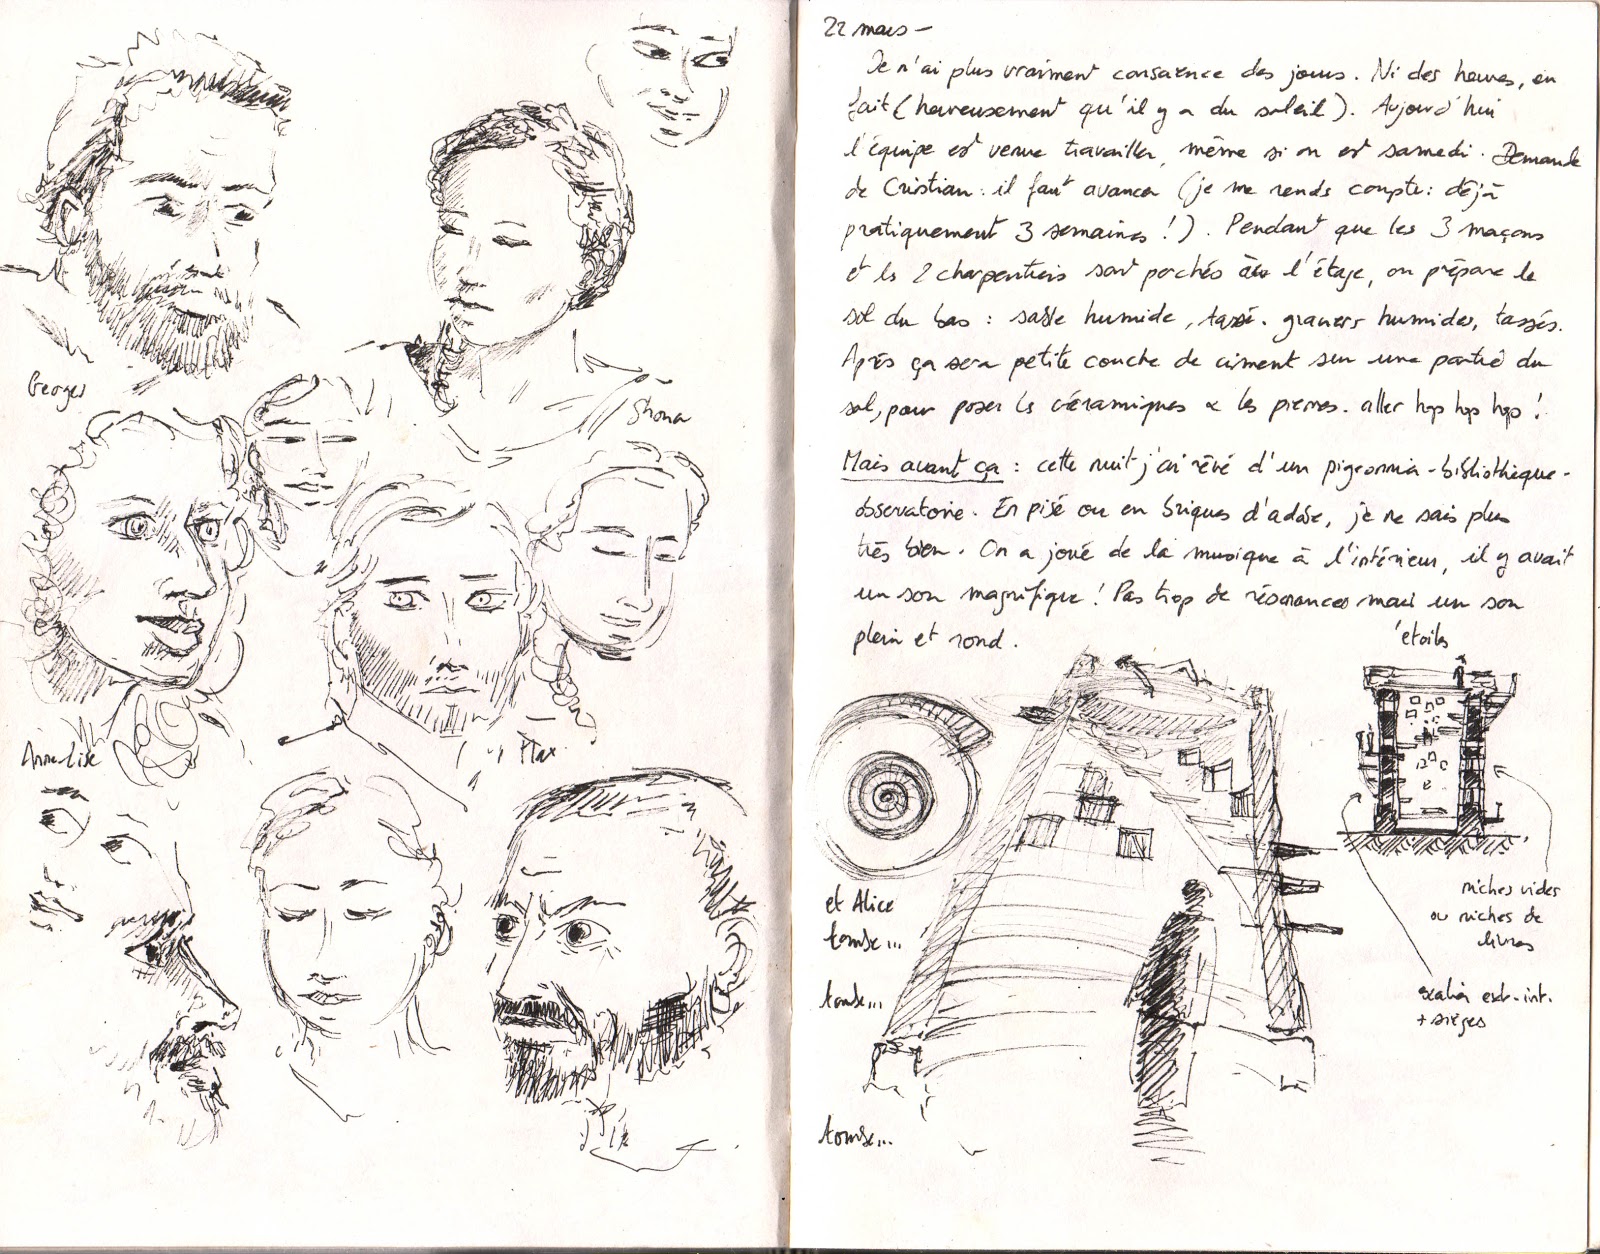 Georges
Shona
Anne-Lise
Max
22 mars -
Je n'ai plus vraiment conscience des jours. Ni des heures, en
fait (heureusement qu'il y a du soleil). Aujourd'hui
l'équipe est venue travailler, même si on est samedi. Demande
de Cristian : il faut avancer (je me rends compte : déjà
pratiquement 3 semaines !). Pendant que les 3 maçons
et ls 2 charpentiers sont perchés à l'étage, on prépare le
sol du bas : sable humide, tassé. graviers humides, tassés.
Après ça sera petite couche de ciment sur une partie du
sol, pour poser ls céramiques & les pierres. aller hop hop hop !
Mais avant ça : cette nuit j'ai rêvé d'un pigeonnier-bibliothèque-
observatoire. En pisé ou en briques d'adobe, je ne sais plus
très bien. On a joué de la musique à l'intérieur, il y avait
un son magnifique ! Pas trop de résonances mais un son
plein et rond.
étoiles
et Alice
tombe...
tombe...
tombe...
niches vides
ou niches de
livres
escalier ext-int.
+ sièges